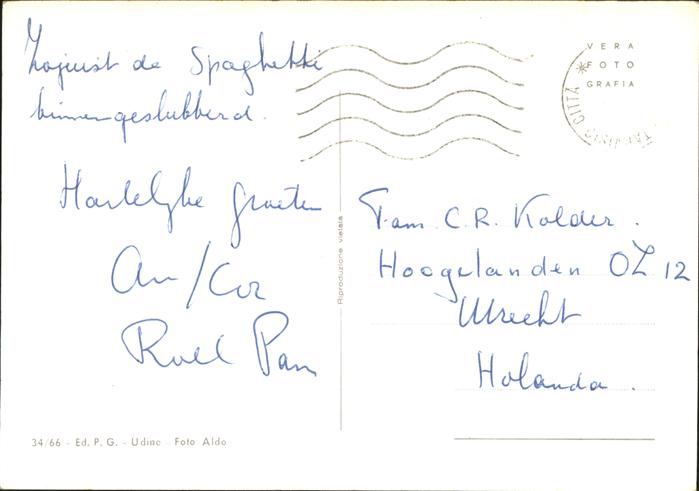 Zojuist de Spaghetti
binnengeslubberd.
Hartelijke groeten
An/Cor
Roel Pam
VERA
FOTO
GRAFIA
CITTÀ
Riproduzione vietata
Fam. C.R. Kolder.
Hoogelanden OZ 12
Utrecht
Holanda.
34/66 - Ed. P. G. - Udine - Foto Aldo